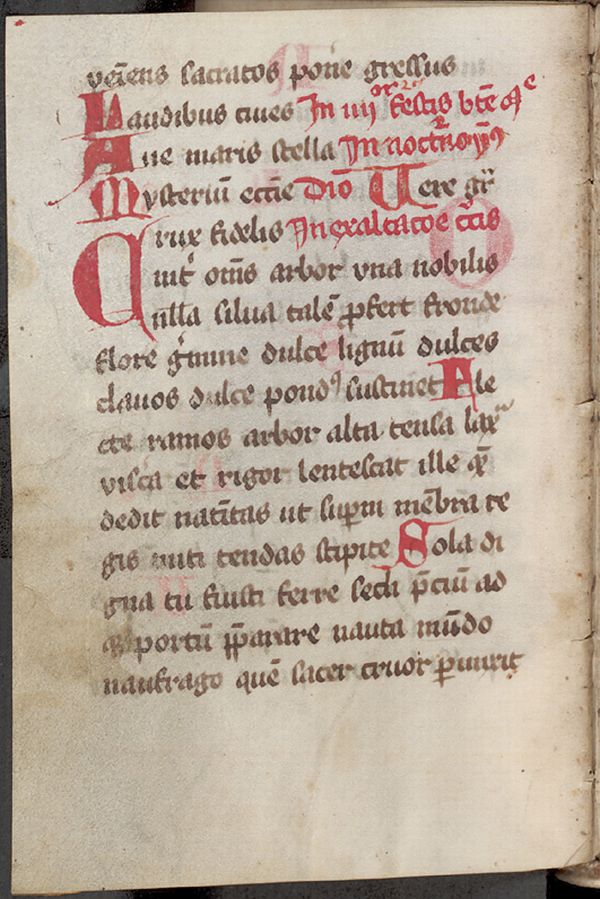 veiens sacratos pone gressus
Laudibus ciues In iiijor festis bte
Aue maris stella In nocturno
Mysteriū eccīe Diō Vere gr
Crux fidelis In exaltacōe scē crucis
int̄ om̄s arbor vna nobilis
nulla silua talē ꝓfert fronde
flore gmine dulce lignū dulces
clauos dulce pondꝰ sustinet Ale
cte ramos arbor alta tensa lax
viscera et rigor lentescat ille quē
dedit natiuitas ut suꝑni mēbra re
gis miti tendas stipite Sola di
gna tu fuisti ferre secli p̄ciū ad
portū p̄parare nauta mūdo
naufrago quē sacer cruor ꝑunxit